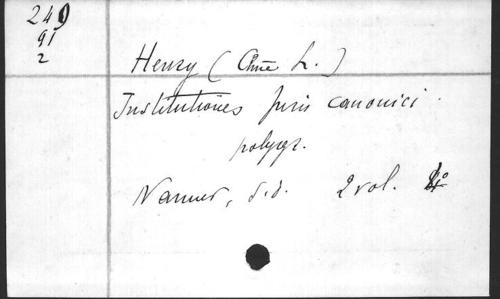 240
91
2
Henry (Chne L.)
Institutiones Juris canonici.
polygr.
Namur, s.d. 2 vol. 4°